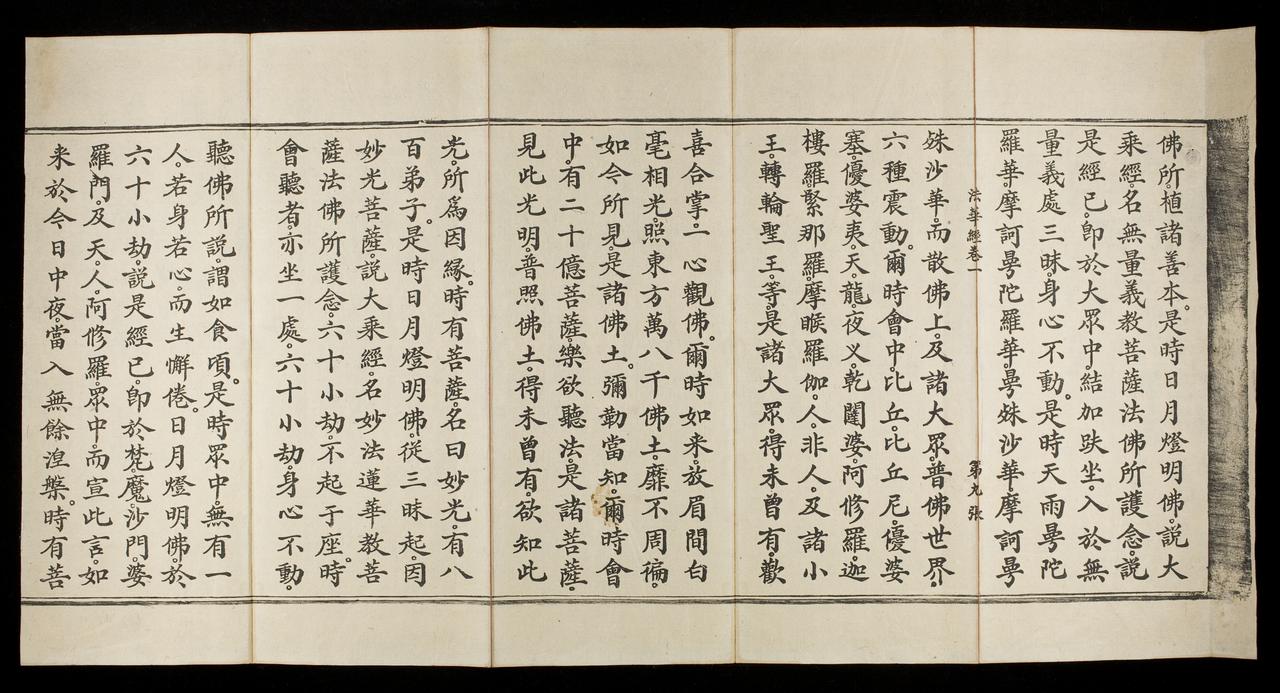 佛所植諸善本。是時日月燈明佛。說大
乘經。名無量義教菩薩法佛所護念。說
是經已。卽於大眾中。結加趺坐。入於無
量義處三昧。身心不動。是時天雨曼陀
羅華。摩訶曼陀羅華。曼殊沙華。摩訶曼
法華經卷一 第九張
殊沙華。而散佛上。及諸大眾。普佛世界。
六種震動。爾時會中。比丘。比丘尼。優婆
塞。優婆夷。天龍。夜叉。乾闥婆。阿修羅。迦
樓羅。緊那羅。摩睺羅伽。人非人。及諸小
王。轉輪聖王等。是諸大眾。得未曾有。歡
喜合掌。一心觀佛。爾時如来。放眉間白
毫相光。照東方萬八千佛土。靡不周徧。
如今所見。是諸佛土。彌勒當知。爾時會
中。有二十億菩薩。樂欲聽法。是諸菩薩。
見此光明。普照佛土。得未曾有。欲知此
光。所爲因緣。時有菩薩。名曰妙光。有八
百弟子。是時日月燈明佛。從三昧起。因
妙光菩薩。說大乘經。名妙法蓮華教菩
薩法佛所護念。六十小劫。不起于座。時
會聽者。亦坐一處。六十小劫。身心不動。
聽佛所說。謂如食頃。是時眾中。無有一
人。若身若心。而生懈倦。日月燈明佛。於
六十小劫。說是經已。卽於梵魔沙門。婆
羅門。及天。人。阿修羅眾中。而宣此言。如
来於今日中夜。當入無餘湼槃。時有菩